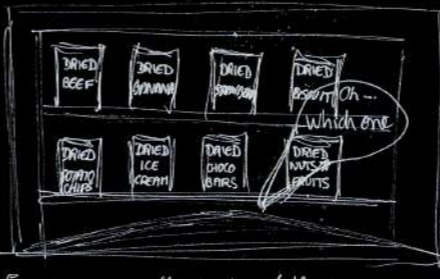 DRIED
BEEF
DRIED
BANANA
DRIED
DRIED
BISCUIT
Oh...
which one
DRIED
POTATO
CHIPS
DRIED
ICE
CREAM
DRIED
CHOCO
BARS
DRIED
NUTS
FRUITS